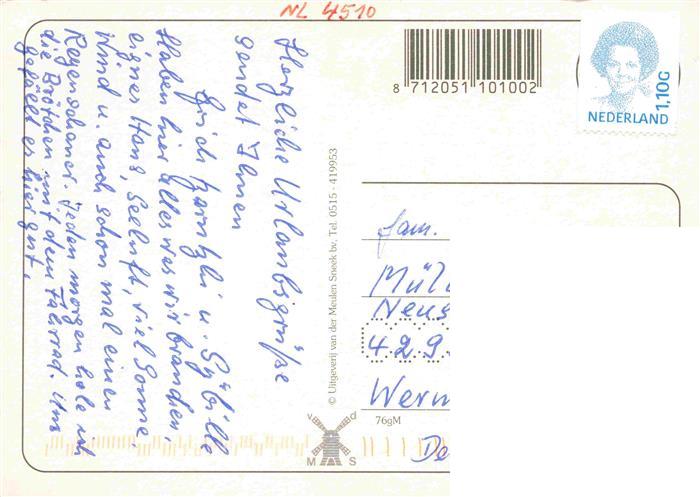 NL 4510
8 712051 101002
1,10G
NEDERLAND
Herzliche Urlaubsgrüße
sendet Ihnen
Erich u. Sybille
Haben hier alles was wir brauchen
eignes Haus, Seeluft, viel Sonne,
Wind u. auch schon mal einen
Regenschauer. Jeden morgen hole ich
die Brötchen mit dem Fahrrad. Uns
gefällt es hier gut.
© Uitgeverij van der Meulen Sneek bv, Tel. 0515 - 419953
Fam.
Mül
Neus
429
Wern
76gM
V D
M S
De